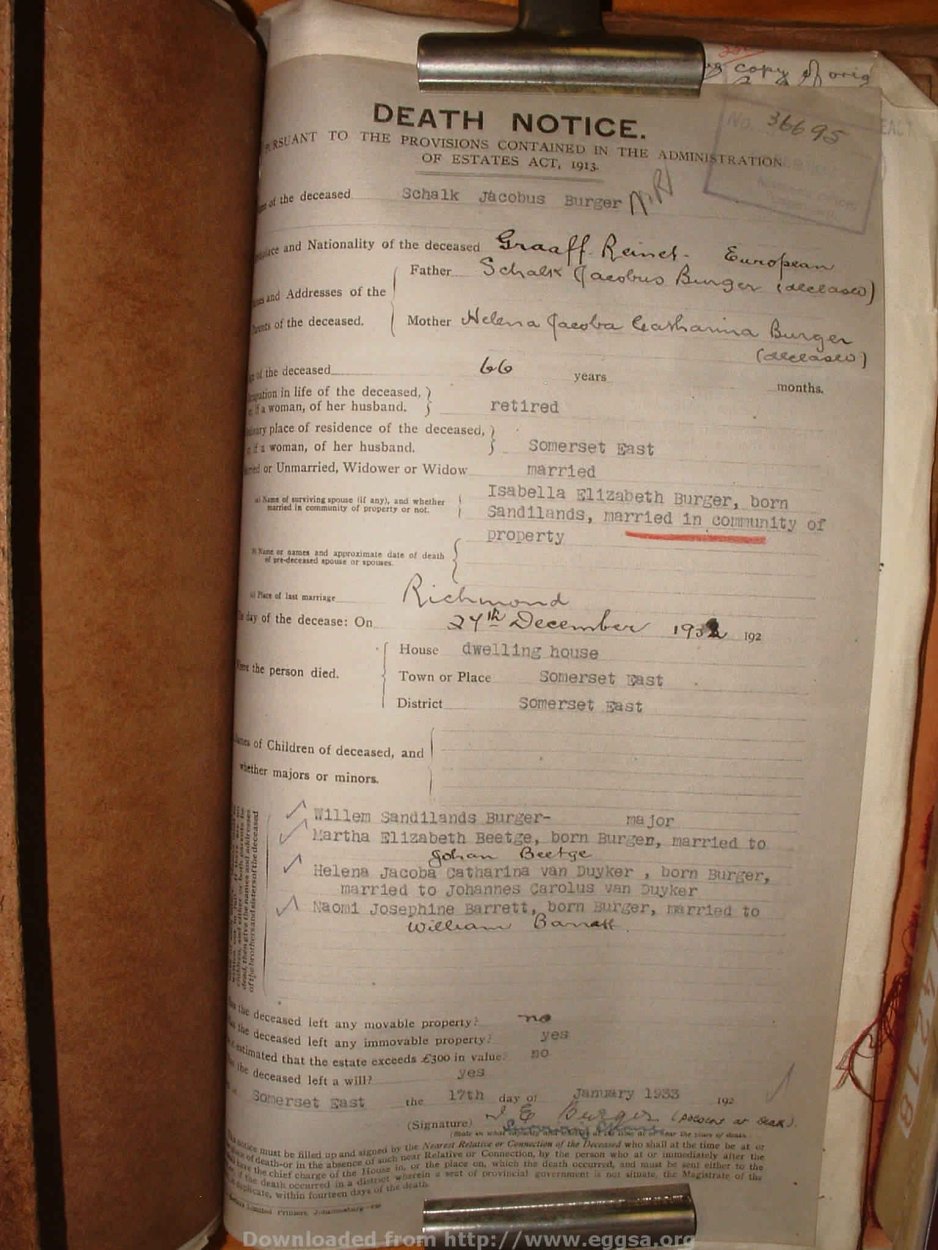 copy of orig
DEATH NOTICE.
No. 36695
PURSUANT TO THE PROVISIONS CONTAINED IN THE ADMINISTRATION
OF ESTATES ACT, 1913.
of the deceased Schalk Jacobus Burger
and Nationality of the deceased Graaff-Reinet - European
Father Schalk Jacobus Burger (deceased)
and Addresses of the
of the deceased.
Mother Helena Jacoba Catharina Burger
(deceased)
of the deceased 66 years months.
in life of the deceased,
if a woman, of her husband. retired
place of residence of the deceased,
if a woman, of her husband. Somerset East
or Unmarried, Widower or Widow married
(a) Name of surviving spouse (if any), and whether
married in community of property or not.
Isabella Elizabeth Burger, born
Sandilands, married in community of
property
(b) Name or names and approximate date of death
of pre-deceased spouse or spouses.
(c) Place of last marriage Richmond
day of the decease: On 27th December 1932 192
the person died.
House dwelling house
Town or Place Somerset East
District Somerset East
of Children of deceased, and
whether majors or minors.
Willem Sandilands Burger- major
Martha Elizabeth Beetge, born Burger, married to
Johan Beetge
Helena Jacoba Catharina van Duyker , born Burger,
married to Johannes Carolus van Duyker
Naomi Josephine Barrett, born Burger, married to
William Barrett.
dead, then give the names and addresses
of the brothers and sisters of the deceased
the deceased left any movable property? no
the deceased left any immovable property? yes
estimated that the estate exceeds £300 in value? no
the deceased left a will? yes
Somerset East the 17th day of January 1933 192
(Signature) I E Burger (present at death).
notice must be filled up and signed by the Nearest Relative or Connection of the Deceased who shall at the time be at or
of death-or in the absence of such near Relative or Connection, by the person who at or immediately after the
have the chief charge of the House in, or the place on, which the death occurred, and must be sent either to the
the death occurred in a district wherein a seat of provincial government is not situate, the Magistrate of the
duplicate, within fourteen days of the death.
Limited Printers, Johannesburg
Downloaded from http://www.eggsa.org